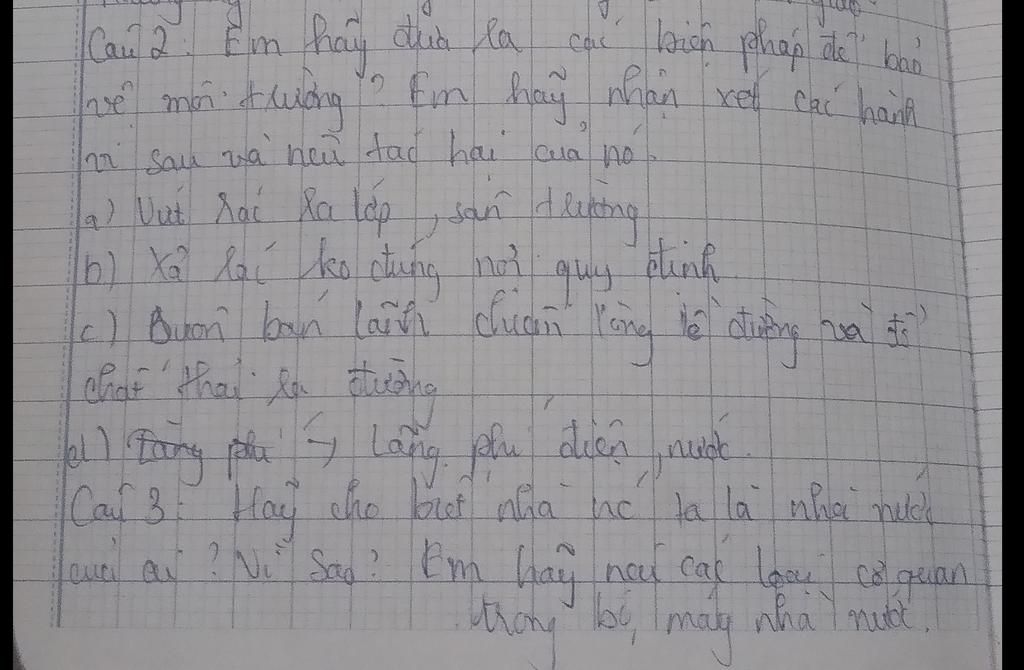 Câu 2: Em hãy đưa ra các biện pháp để bảo
vệ môi trường? Em hãy nhận xét các hành
vi sau và nêu tác hại của nó.
a) Vứt rác ra lớp, sân trường
b) Xả rác ko đúng nơi quy định
c) Buôn bán lấn chiếm lòng lề đường và đổ
chất thải ra đường
d) Lãng phí → Lãng phí điện, nước.
Câu 3: Hãy cho biết nhà nc ta là nhà nước
của ai? Vì Sao? Em hãy nêu các loại cơ quan
trong bộ máy nhà nước.